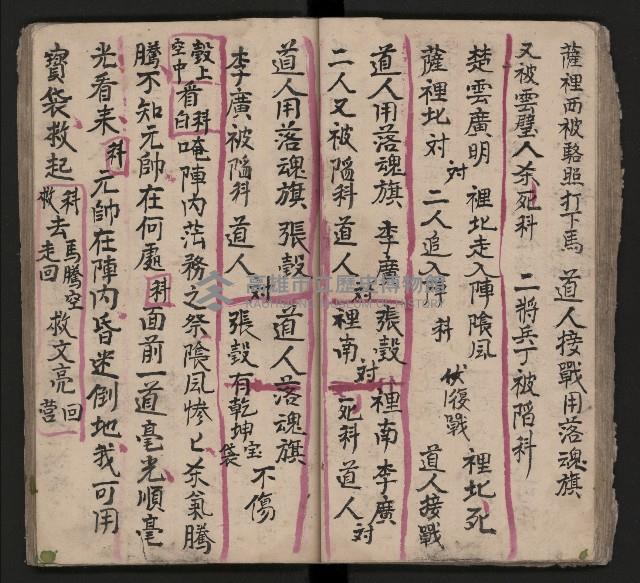 薩裡西被駱照打下馬　道人接戰用落魂旗
又被雲璧人杀死科　二將兵丁被陷科
楚雲廣明對裡北走入陣陰風　裡北死
薩裡北對　二人追入了科　伏復戰　道人接戰
道人用落魂旗　李廣對張瑴　裡南李廣
二人又被陷科　道人對裡南死科　道人對
道人用落魂旗　張瑴　道人落魂旗
李廣被陷科　道人對張瑴有乾坤宝袋不傷
瑴上空中看科白唵陣內茫務之祭陰風慘匕杀氣騰
騰不知元帥在何處科面前一道毫光順毫
光看来科元帥在陣內昏迷倒地我可用
寶袋救起科救去馬騰空走回　救文亮回營
高雄市立歷史博物館
KAOHSIUNG MUSEUM OF HISTORY